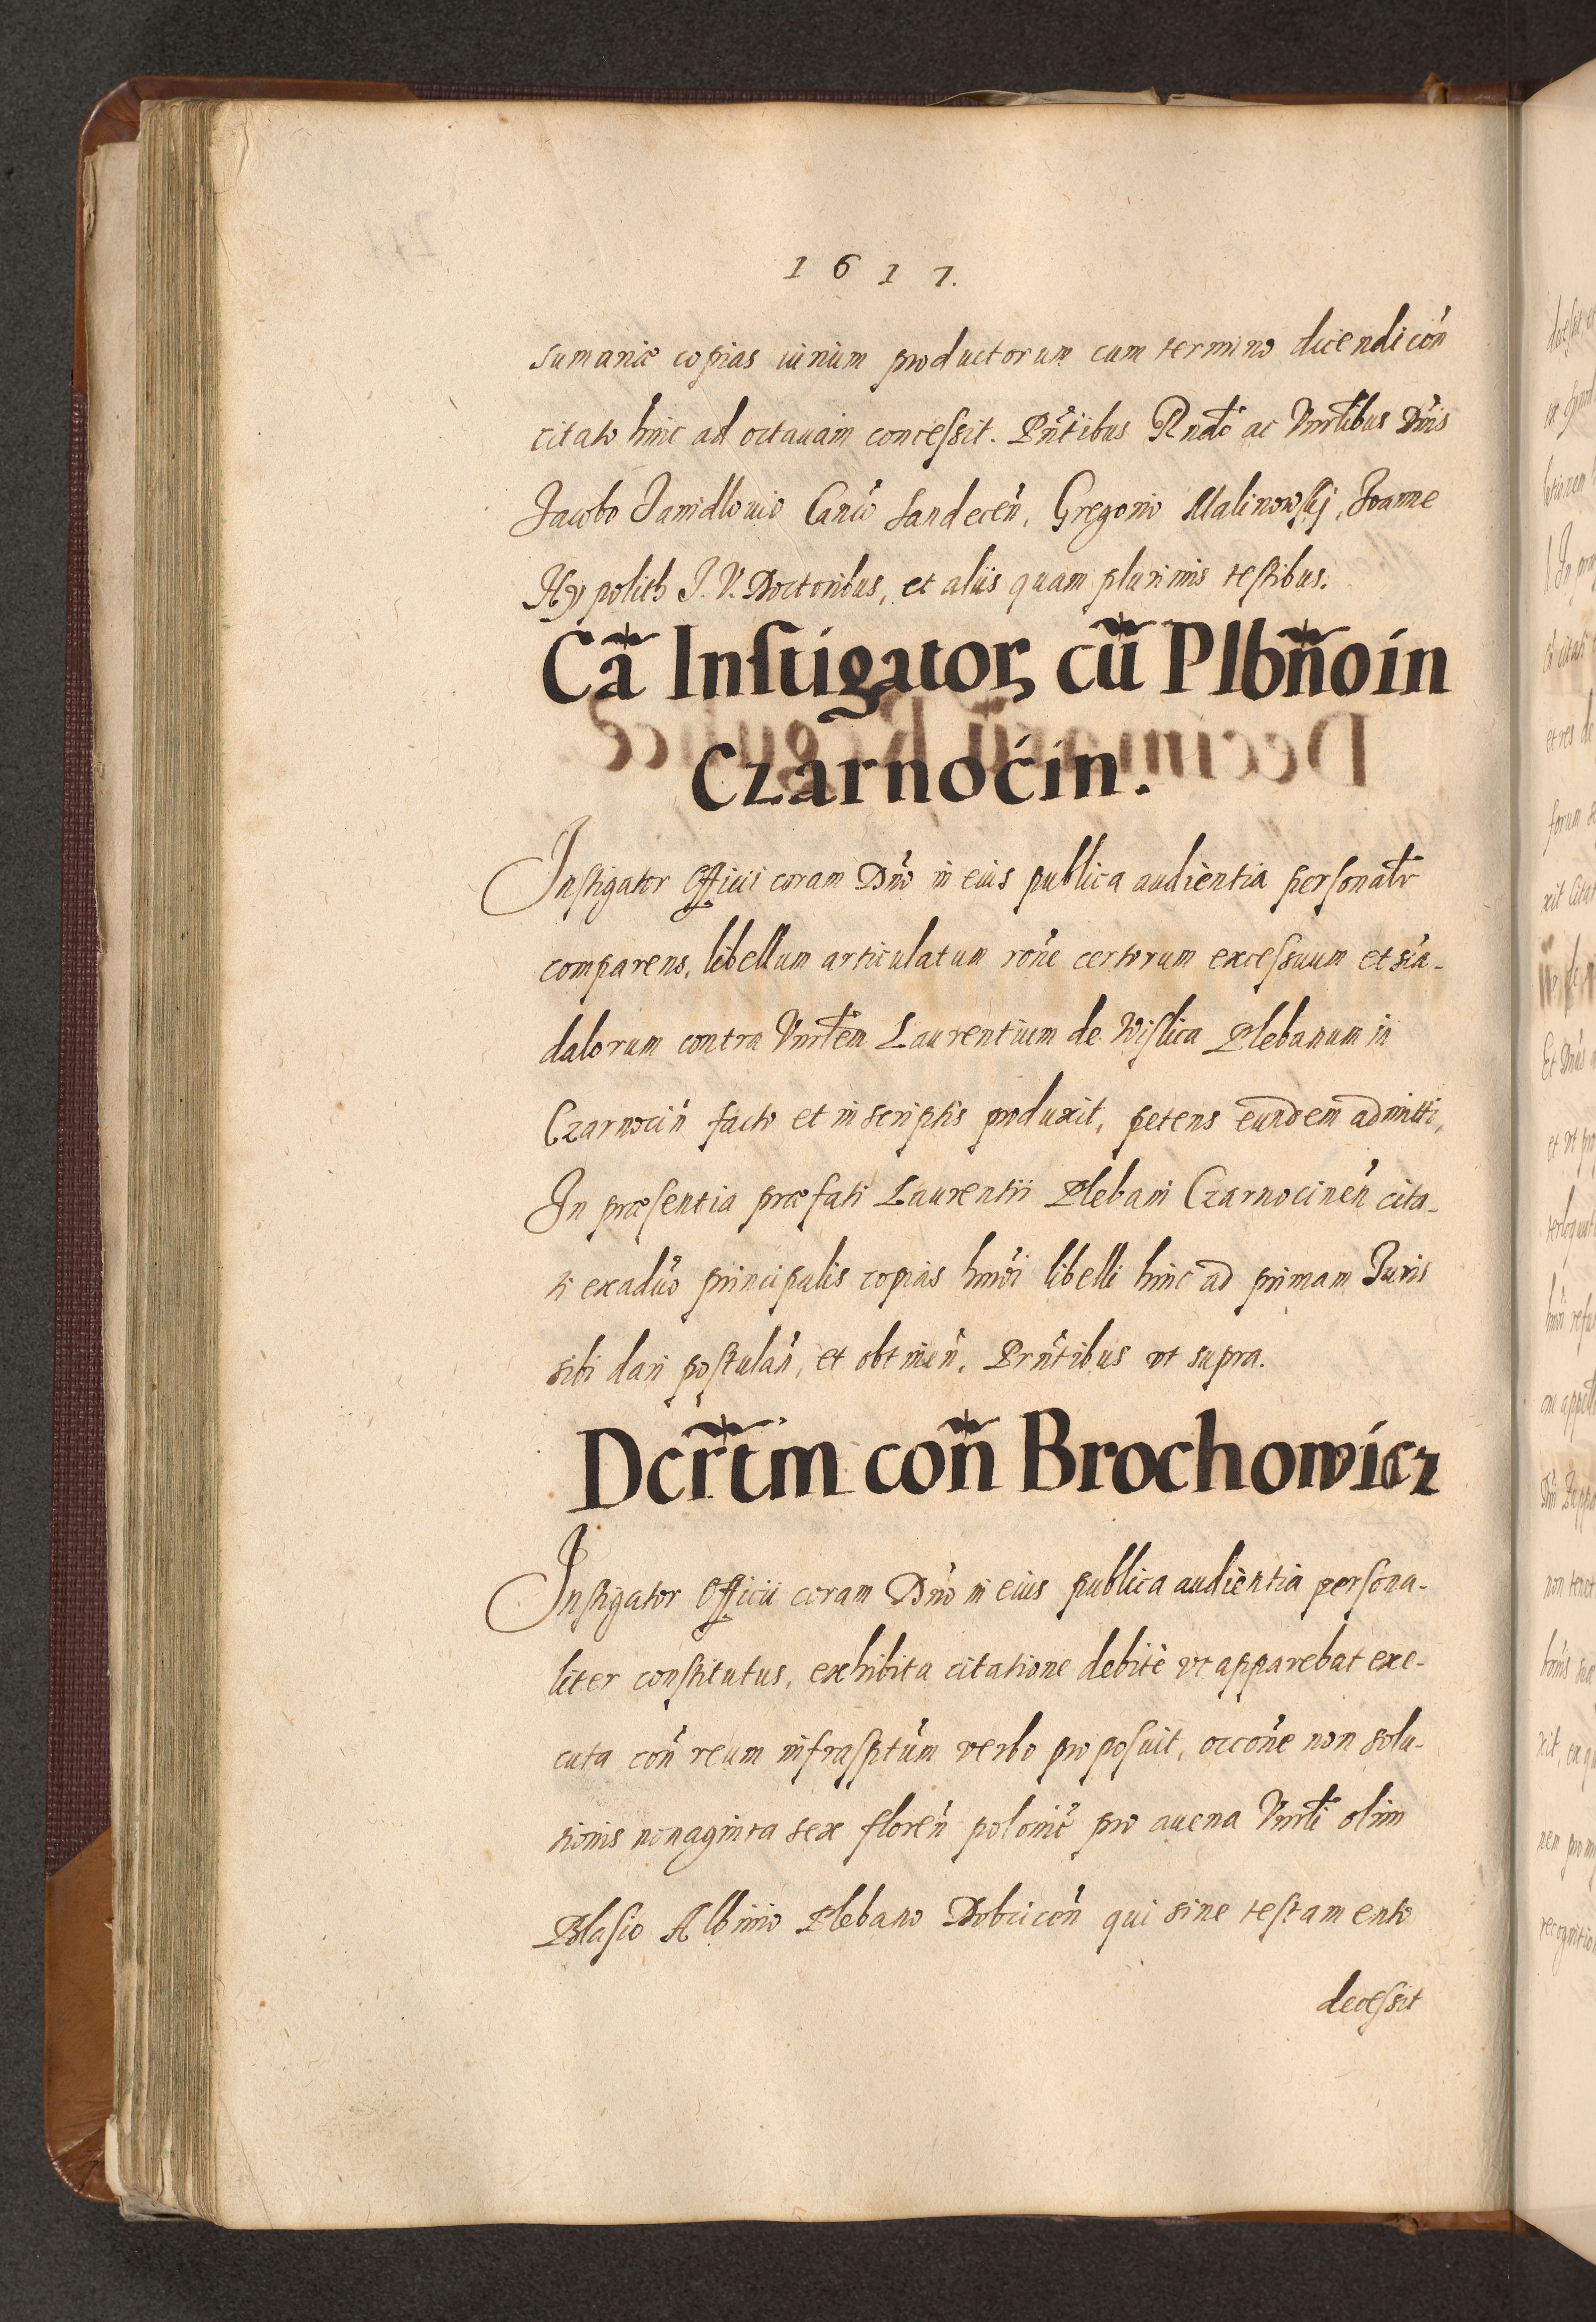 1617.
sumariæ copias iurium productorum cum termino dicendi coń
citato hinc ad octauam concessit. Pñtibus Rndo ac Vnrlibus Dnis
Jacobo Janidlouio Canco Sandeceń, Gregorio Malinowskj, Joanne
Hypolith J. V. Doctoribus, et aliis quam plurimis testibus.
Cã Instigator cũ Plbño in
Czarnoćin.
Instigator Officii coram Dno in eius publica audientia personalr
comparens, libellum articulatum rone certorum excessuum et scã-
dalorum contra Vnrlem Laurentium de Wislica Plebanum in
Czarnociń facto et in scriptis produxit, petens eundem admitti,
In præsentia præfati Laurentii Plebani Czarnocineń cita-
ti ex aduo principalis copias hmoi libelli hinc ad primam Juris
sibi dari postulań, et obtineń. Prñtibus vt supra.
Dcrtm coñ Brochowicz
Instigator Officii coram Dno in eius publica audientia persona-
liter constitutus, exhibita citatione debitè vt apparebat exe-
cuta coń reum infrasptum verbo proposuit, occone non solu-
tionis nonaginta sex floreń polonic pro auena Vnrli olim
Blasio Albinio Plebano Dobcicoń qui sine testamento
decessit